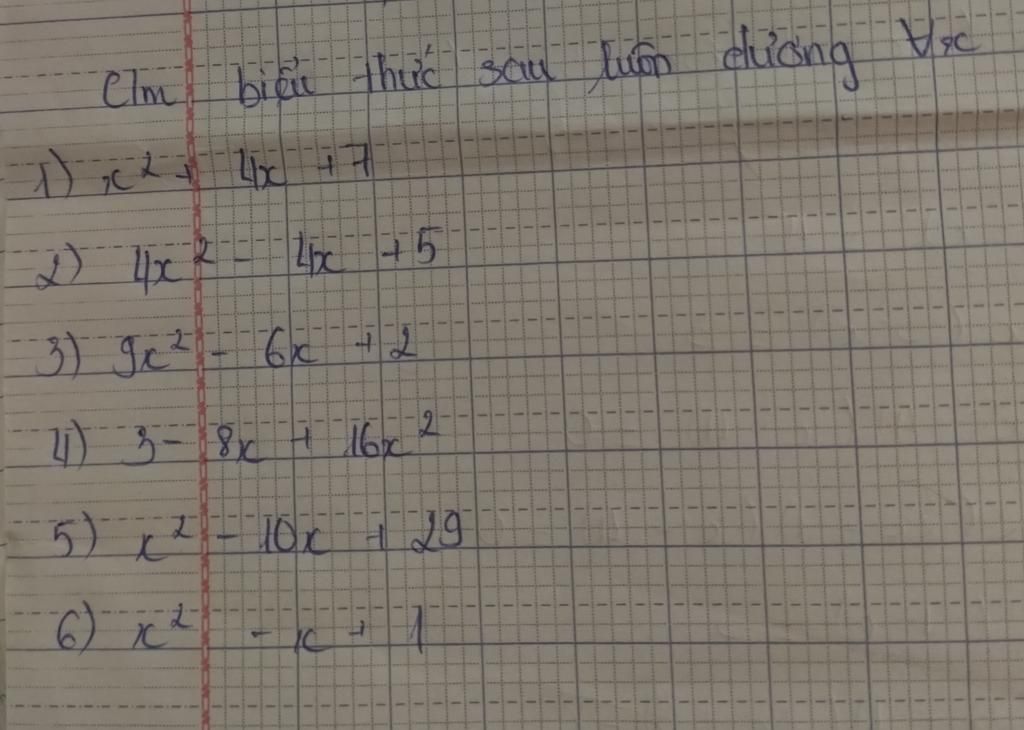 Clm biểu thức sau luôn dương ∀x
1) x² + 4x + 7
2) 4x² - 4x + 5
3) 9x² - 6x + 2
4) 3 - 8x + 16x²
5) x² - 10x + 29
6) x² - x + 1